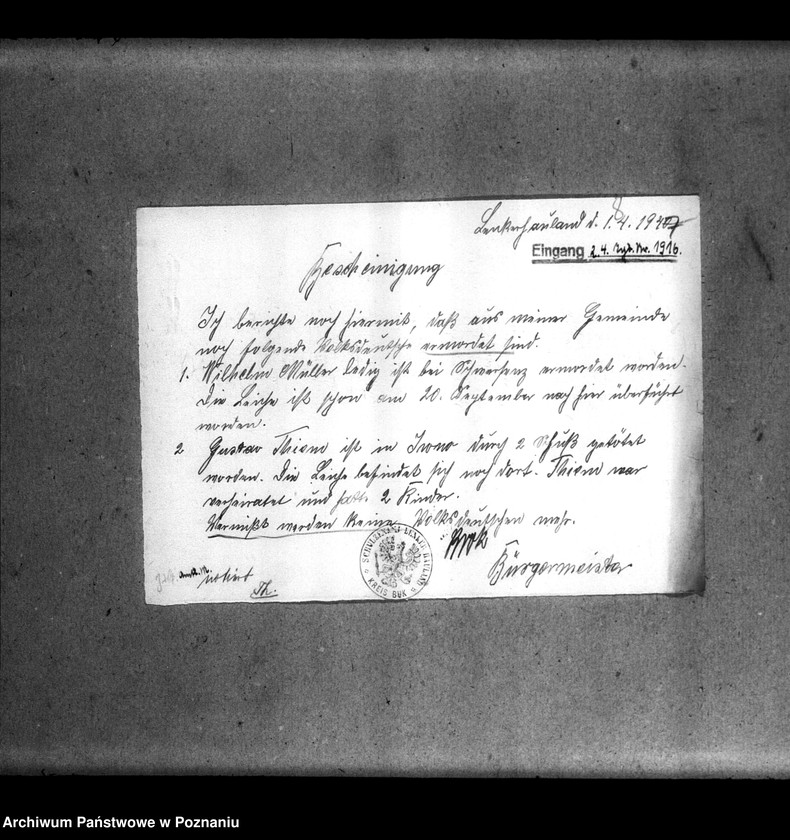 Lenkerhauland d. 1.4. 1940
Eingang 2.4. Nr. 1916.
Bescheinigung
Ich berichte noch hiermit, daß aus meiner Gemeinde
noch folgende Volksdeutsche ermordet sind.
1. Wilhelm Müller ledig ist bei Schwersenz ermordet worden.
Die Leiche ist schon am 20. September nach hier überführt
worden.
2 Gustav Thiem ist in durch 2 Schuß getötet
worden. Die Leiche befindet sich noch dort. Thiem war
verheiratet und hatte 2 Kinder.
Vermißt werden keine Volksdeutschen mehr.
Bürgermeister
notiert
Th.
KREIS BUK
Archiwum Państwowe w Poznaniu